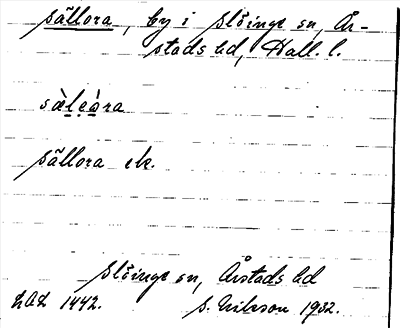 Sällora, by i Slöinge sn, År-
stads hd, Hall. l.
sä̀lẹȧ̀ra
Sällora ek.
Slöinge sn, Årstads hd
LAL 1442. S. Nilsson 1932.